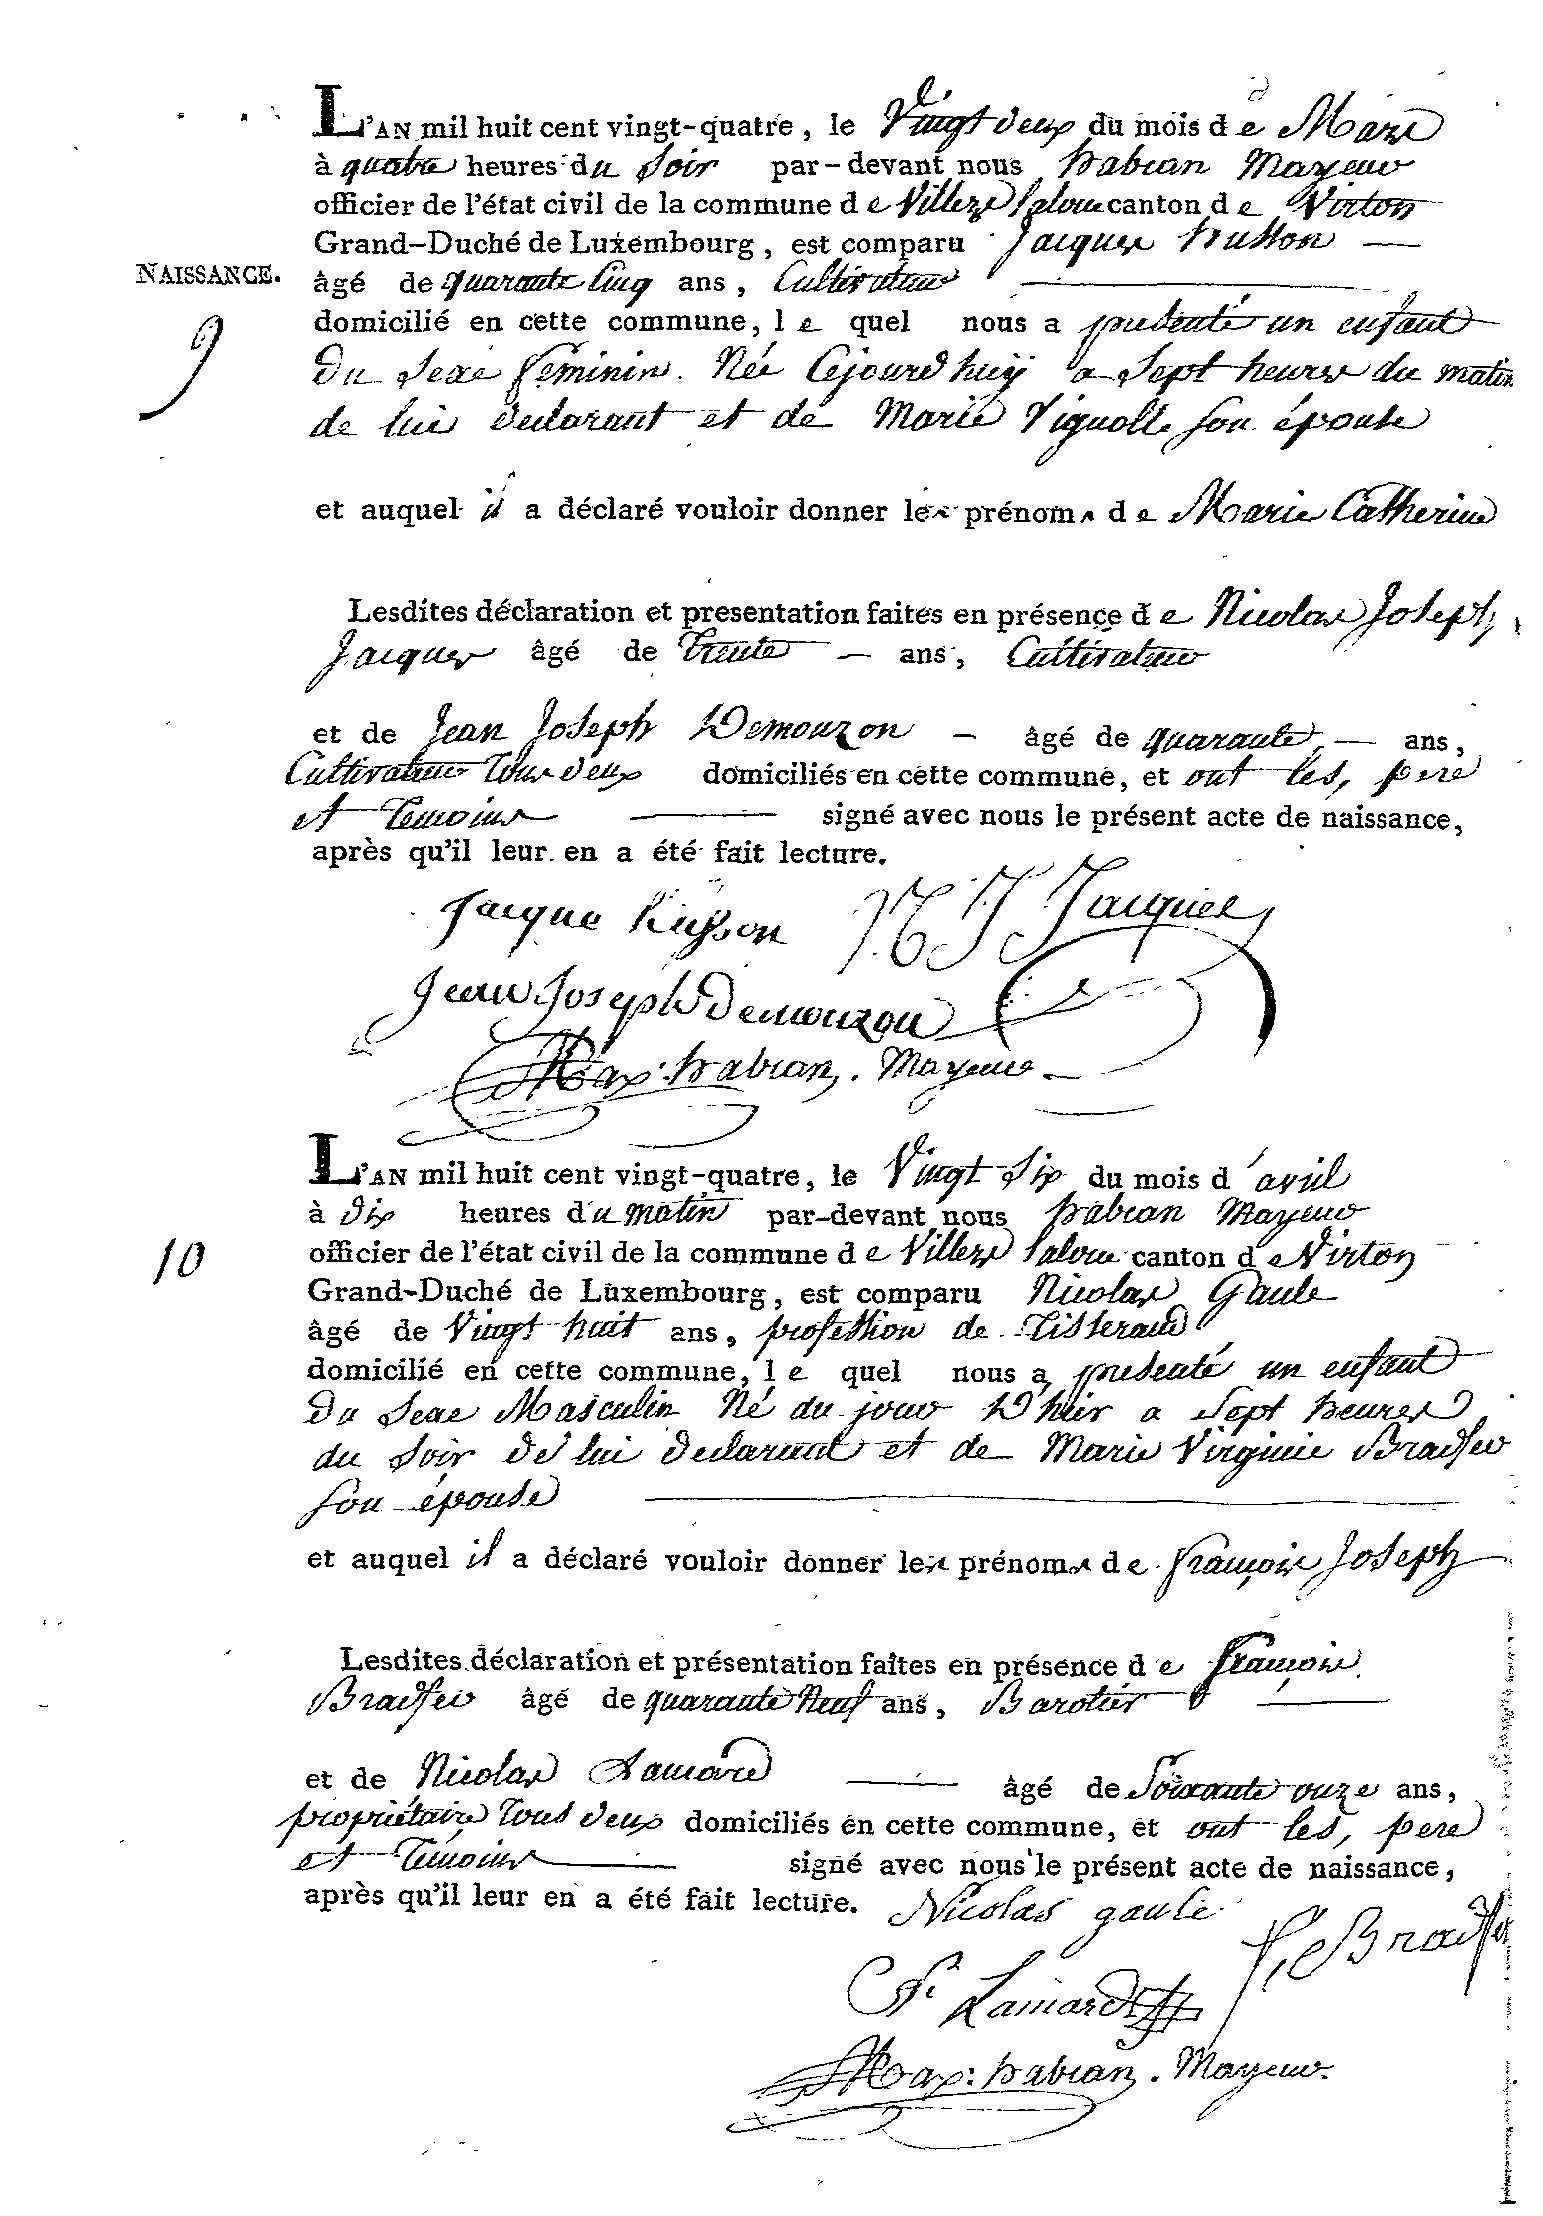 L'AN mil huit cent vingt-quatre, le Vingt deux du mois de Mars
à quatre heures du Soir par-devant nous habran Mayeur
officier de l'état civil de la commune de Villers Laloue canton de Virton
Grand-Duché de Luxembourg, est comparu Jacques husson
NAISSANCE.
âgé de quarante Cinq ans, Cultivateur
9
domicilié en cette commune, le quel nous a presenté un enfant
du Sexe féminin. Née Cejourdhuy a Sept heures du matin
de lui declarant et de Marie Vignolle Son épouse
et auquel il a déclaré vouloir donner les prénoms de Marie Catherine
Lesdites déclaration et presentation faites en présence de Nicolas Joseph
Jacques âgé de trente ans, Cultivateur
et de Jean Joseph Demouzon âgé de quarante ans,
Cultivateur tous deux domiciliés en cette commune, et ont les, pere
et temoins signé avec nous le présent acte de naissance,
après qu'il leur en a été fait lecture.
Jacque husson N J Jacques
Jean Joseph Demouzon
Max: habran. Mayeur
L'AN mil huit cent vingt-quatre, le Vingt Six du mois d'avril
à dix heures du matin par-devant nous habran Mayeur
10
officier de l'état civil de la commune de Villers Laloue canton de Virton
Grand-Duché de Luxembourg, est comparu Nicolas Gaule
âgé de Vingt huit ans, profession de Tisserand
domicilié en cette commune, le quel nous a presenté un enfant
du Sexe Masculin Né du jour D'hier a Sept heures
du Soir de lui declarant et de Marie Virginie Bradfer
Son épouse
et auquel il a déclaré vouloir donner les prénoms de françois Joseph
Lesdites déclaration et présentation faites en présence de françois
Bradfer âgé de quarante Neuf ans, Barotier
et de Nicolas Lamard âgé de Soixante onze ans,
propriétaire tous deux domiciliés en cette commune, et ont les, pere
et témoins signé avec nous le présent acte de naissance,
après qu'il leur en a été fait lecture. Nicolas gaule
f. Bradfer
N. Lamard
Max: habran. Mayeur.